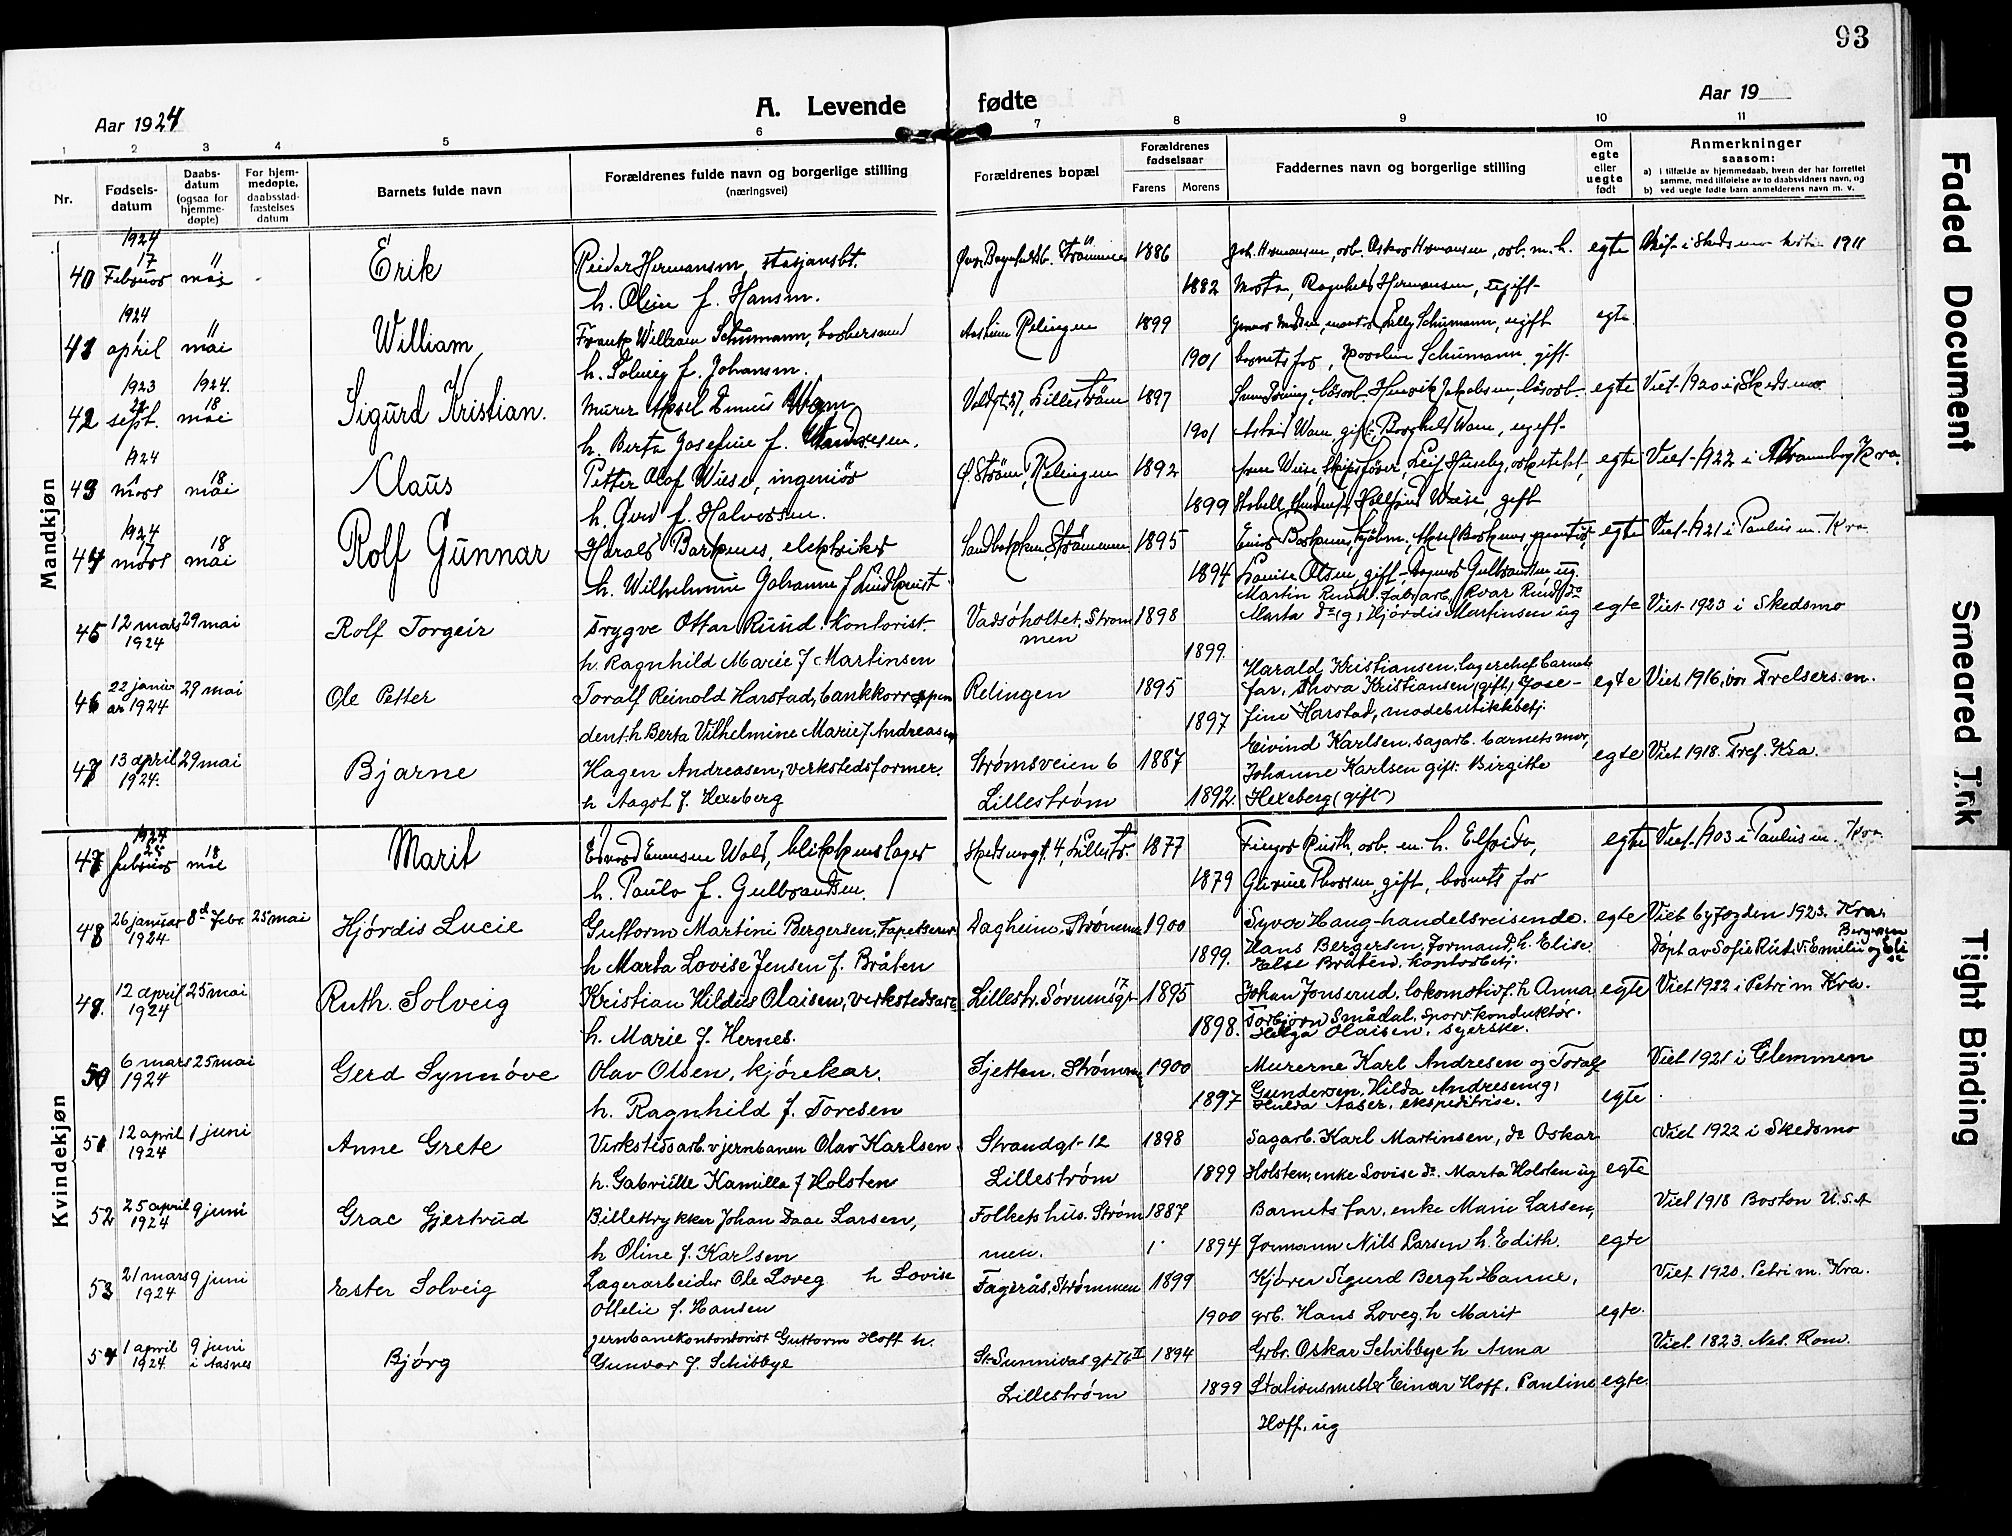 93
Aar 1924
A. Levende fødte
Aar 19
1 2 3 4 5 6 7 8 9 10 11
Nr.
Fødsels-
datum
Daabs-
datum
(ogsaa for
hjemme-
døpte)
For hjem-
medøpte,
daabsstad-
fæstelses
datum
Barnets fulde navn
Forældrenes fulde navn og borgerlige stilling
(næringsvei)
Forældrenes bopæl
Forældrenes
fødselsaar
Farens Morens
Faddernes navn og borgerlige stilling
Om
egte
eller
uegte
født
Anmerkninger
saasom:
a) i tilfælde av hjemmedaab, hvem der har forrettet
samme, med tilføielse av to daabsvidners navn, og
b) ved uegte fødte barn anmelderens navn m. v.
Mandkjøn
1924
40 17 Februar 11 mai Erik Reidar Hermansen, stasjonsbt. Strømmen 1886 Joh. Hermansen, arb. Oskar Hermansen, arb. m. h. egte 1911
h. Oline f. Hansen. 1882 Marta, Ragnhild Hermansen, ugift
1924
41 april 11 mai William Frank William Schumann, h. Solveig f. Johansen. Relingen 1899 Lilly Schumann, ugift egte
1901 barnets far, Schumann gift
1923 1924.
42 21 sept. 18 mai Sigurd Kristian. Murer Aksel Warn Voldgt. 37, Lillestrøm 1897 Henrik Jakobsen, egte Viet 1920 i Skedsmo
h. Berta Josefine f. Andresen. 1901 Astrid Warn gift, Borghild Warn, ugift
1924
43 mars 18 mai Claus Petter Olaf Wiese, ingeniør Ø. Strøm, Relingen 1892 Wiese, Skipsfører, Leif Huseby, arkitekt, egte Viet 1922 i Kra.
h. Gerd f. Halvorsen. 1899 Wiese, gift
1924
44 17 mars 18 mai Rolf Gunnar Harald Barkenes, elektriker Sandbakken, Strømmen 1895 egte Viet 1921 i Paulus m. Kra
h. Wilhelmine Johanne f Lindkvist 1894 Louise Olsen, gift, Gulbrandsen ug.
45 12 mars 1924 29 mai Rolf Torgeir Trygve Ottar Rund. Kontorist. Vadsøholtet, Strømmen 1898 Martin Rund. fabr.arb, Ivar Rund do Marta do (g), Hjørdis Martinsen ug egte Viet 1923 i Skedsmo
h. Ragnhild Marie f Martinsen 1899.
46 22 januar 1924 29 mai Ole Petter Toralf Reinold Harstad, bankkorrespon Relingen 1895 Harald Kristiansen, lagerchef barnets far, Thora Kristiansen (gift) Jose- egte Viet 1916, vor Frelsers. m.
dent. h Berta Vilhelmine Marie f Andreasen 1897 fine Harstad, modebutikkbetj.
47 13 april 1924. 29 mai Bjarne Hagen Andreasen, verkstedsformer. Strømsveien 6 1887 Eivind Karlsen, sagarb. barnets mor, Johanne Karlsen gift. Birgithe egte Viet 1918. Fref. Kra.
h Aagot f. Hexeberg Lillestrøm 1892. Hexeberg (gift)
Kvindekjøn
1924
47 25 februar 18 mai Marit Edvard Wold, blikkenslager Skedsmogt. 4, Lillestr. 1877 Ruth, arb. m. h. Elfrida, egte Viet 1903 i Paulus m. Kra
h. Paula f. Gulbrandsen. 1879 Thorsen gift, barnets far
48 26 januar 1924 8de Febr. 25 mai Hjørdis Lucie Guttorm Martini Bergersen, Tapetserer Dagheim, Strømmen 1900 Syver Haug - handelsreisende. egte Viet byfogden 1923. Kra.
h Marta Lovise Jensen f. Bråten 1899. Hans Bergersen, Formand, h. Elise. Else Bråten, kontorbetj. Døpt av Sofie Rust v. Emilie og Elise Bergersen
49. 12 april 1924 25 mai Ruth. Solveig Kristian Hildus Olaisen, verkstedsarb. Lillestr. Sørumsgt 17 1895 Johan Jonserud, lokomotivf. h Anna egte Viet 1922 i Petri m Kra.
h. Marie f. Hernes. 1898. Torbjørn Smådal, Sporvkonduktør. Helga Olaisen, syerske.
50 6 mars 1924 25 mai Gerd Synnøve Olav Olsen, kjørekar. Sjetten. Strømmen 1900 Murerne Karl Andresen og Toralf Viet 1921 i Glemmen
h. Ragnhild f. Toresen 1897 Gundersen, Hilda Andresen (g), Hulda Aaser, ekspeditrise. egte
51 12 april 1924 1 juni Anne Grete Verkstedsarb. v jernbanen Olav Karlsen Strandgt 12 1898 Sagarb. Karl Martinsen, do Oskar Viet 1922 i Skedsmo
h. Gabrielle Kamilla f Holsten Lillestrøm 1899 Holsten, enke Lovise do. Marta Holsten ug egte
52 25 april 1924 9 juni Grac Gjertrud Billettrykker Johan Daae Larsen, Folkets hus. Strøm 1887 Barnets far, enke Marie Larsen, Viet 1918 Boston U.S.A
h Oline f. Karlsen men. 1894 Formann Nils Larsen h. Edith. egte
53 21 mars 1924 9 juni Ester Solveig Lagerarbeider Ole Loveg h Lovise Fagerås, Strømmen 1899 Kjører Sigurd Berg h Hanne, Viet 1920. Petri m. Kra.
Ottelie f. Hansen 1900 grb. Hans Loveg. h Marit egte.
54 1 april 1924 9 juni i Aasnes Bjørg jernbanekontorist Guttorm Hoff h. Gunvor f. Schibbye St. Sunnivas gt 1894 Grbr. Oskar Schibbye h Anna Viet 1823. Nes. Rom.
Lillestrøm 1899 Stationsmester Einar Hoff, Pauline egte.
Hoff, ug
Faded Document
Smeared Ink
Tight Binding